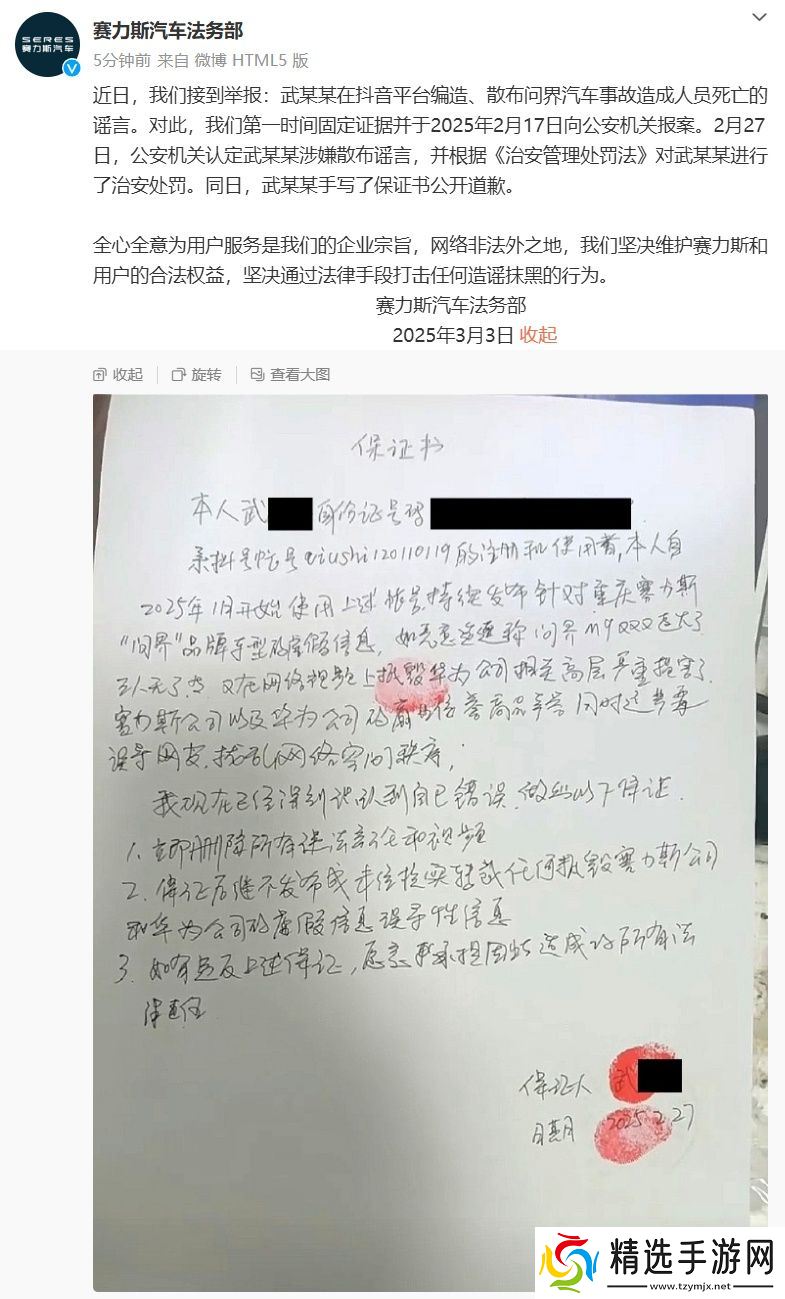 SERES
赛力斯汽车
赛力斯汽车法务部
5分钟前 来自 微博 HTML5 版
近日，我们接到举报：武某某在抖音平台编造、散布问界汽车事故造成人员死亡的
谣言。对此，我们第一时间固定证据并于2025年2月17日向公安机关报案。2月27
日，公安机关认定武某某涉嫌散布谣言，并根据《治安管理处罚法》对武某某进行
了治安处罚。同日，武某某手写了保证书公开道歉。
全心全意为用户服务是我们的企业宗旨，网络非法外之地，我们坚决维护赛力斯和
用户的合法权益，坚决通过法律手段打击任何造谣抹黑的行为。
赛力斯汽车法务部
2025年3月3日 收起
收起 旋转 查看大图
保证书
本人武 身份证号码
系抖号帐号qiushi120110119的注册和使用者,本人自
2025年1月开始使用上述帐号持续发布针对重庆赛力斯
"问界"品牌车型的虚假信息，如恶意造谣称问界M9
又在网络视频上抵毁华为公司相关高层严重损害了
赛力斯公司以及华为公司的商业信誉商品声誉同时这
误导网友,扰乱网络空间秩序；
我现在已经深刻认识到自已错误,做出以下保证.
1. 立即删除所有违法言论和视频
2. 保证后继不发布或未经核实转载任何抵毁赛力斯公司
和华为公司的虚假信息误导性信息
3. 如有违反上述保证，愿意承担因此造成的所有法
律责任
保证人 武
日期 2025.2.27
精选手游网
www.tzymjx.net